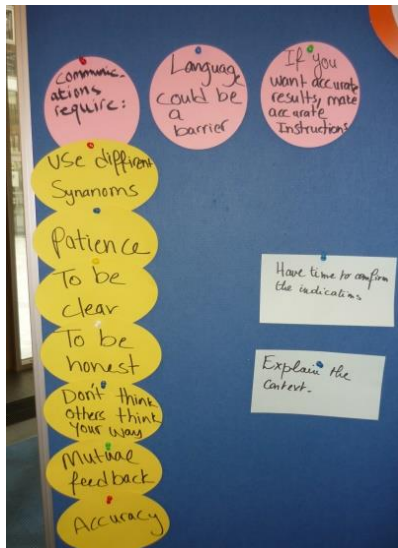 Communic-
ations
require:
Language
could be
a
barrier
If you
want accurate
results, make
accurate
Instructions
Use diffirent
Synanoms
Patience
To be
clear
To be
honest
Don't think
others think
your way
Mutual
feedback
Accuracy
Have time to confirm
the indications
Explain the
context.